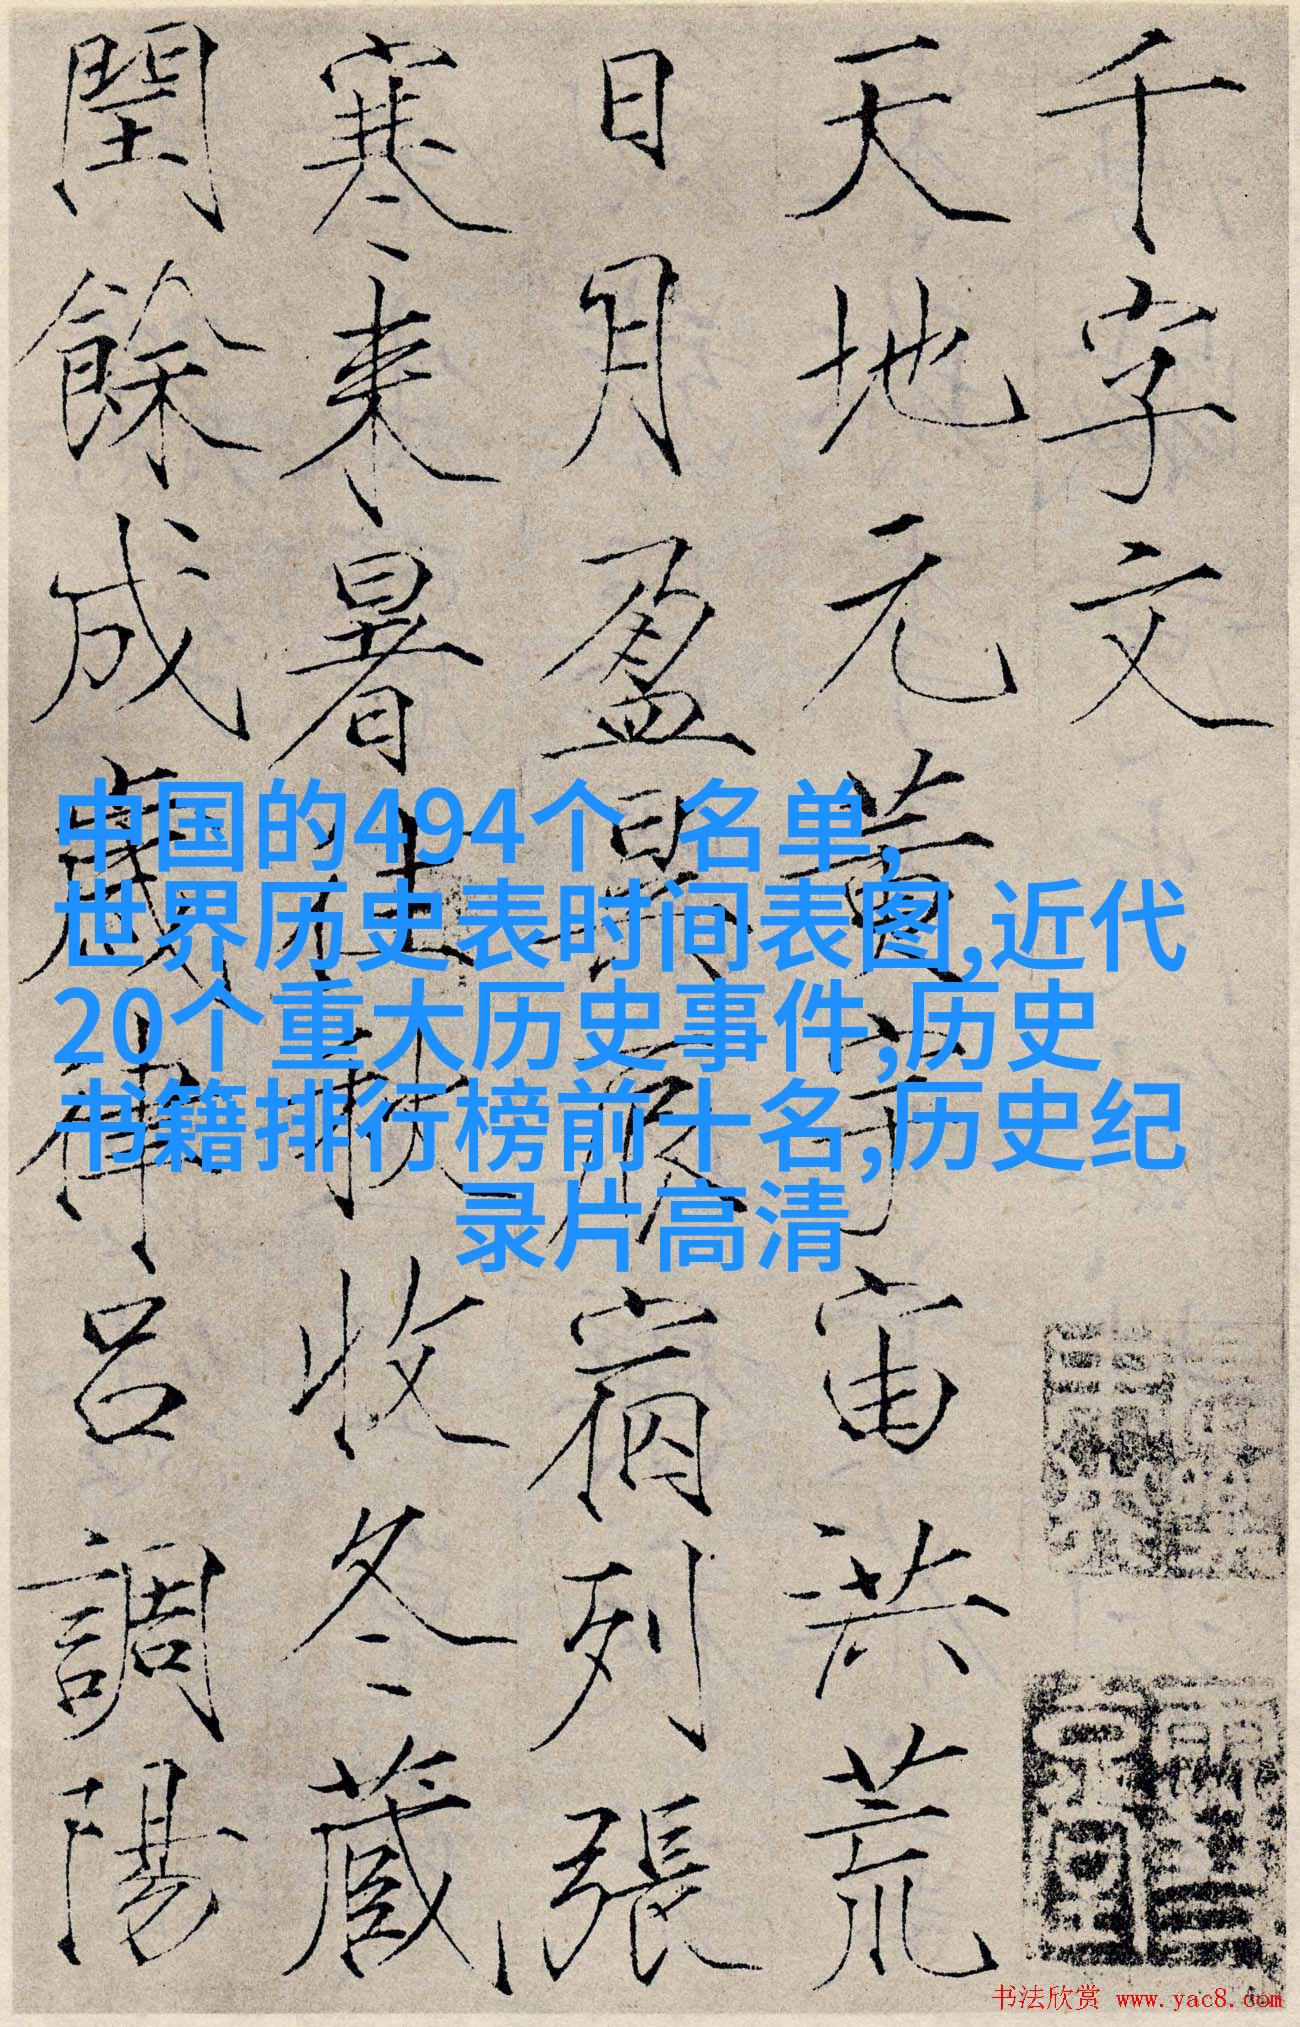 千字文
天地元黃宇宙洪荒
日月盈昃辰宿列張
寒来暑往秋收冬藏
閏餘成歲律呂調陽
中国的494个 名单,
世界历史表时间表图,近代
20个重大历史事件,历史
书籍排行榜前十名,历史纪
录片高清
书法欣赏 www.yac8.com